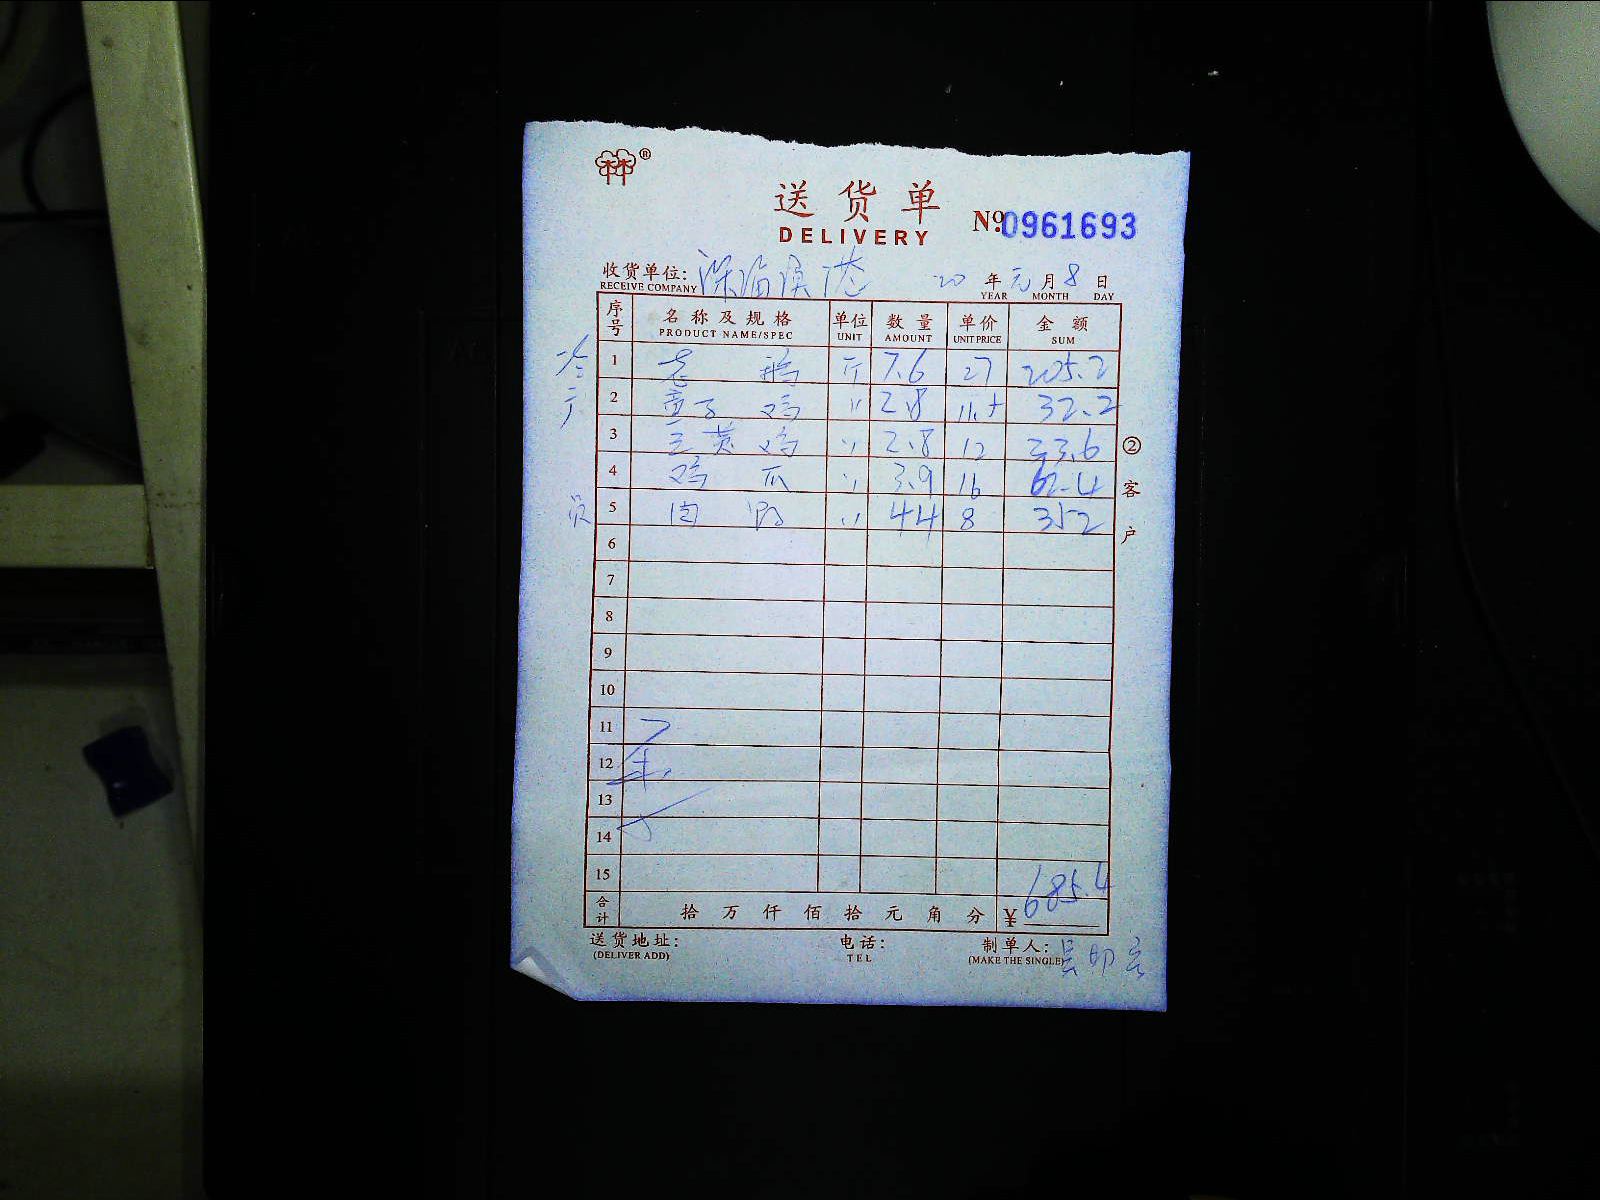 ®
送货单
DELIVERY
№:0961693
收货单位: 20 年 元 月 8 日
RECEIVE COMPANY YEAR MONTH DAY
序号 名称及规格 单位 数量 单价 金额
PRODUCT NAME/SPEC UNIT AMOUNT UNIT PRICE SUM
1 老鸭 斤 7.6 27 205.2
2 童子鸡 〃 2.8 11.5 32.2
3 三黄鸡 〃 2.8 12 33.6
4 鸡爪 〃 3.9 16 62.4
5 肉 〃 44 8 352
6
7
8
9
10
11
12
13
14
15
合计 拾 万 仟 佰 拾 元 角 分 ¥ 685.4
②客户
送货地址: 电话: 制单人:
(DELIVER ADD) TEL (MAKE THE SINGLE)